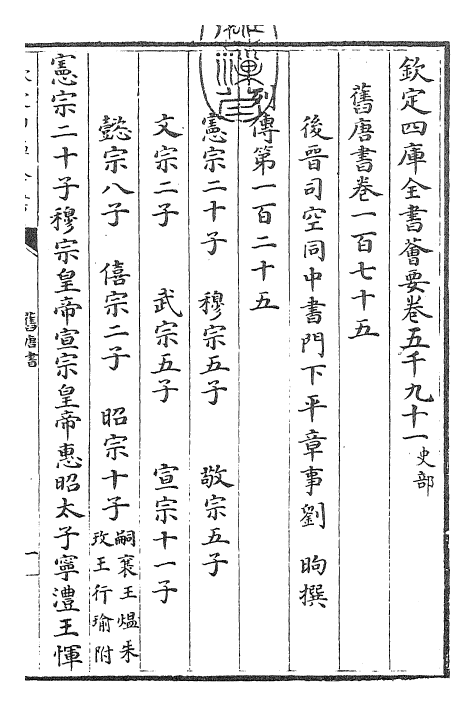 欽定四庫全書薈要卷五千九十一史部
舊唐書卷一百七十五
後晉司空同中書門下平章事劉 昫撰
列傳第一百二十五
憲宗二十子 穆宗五子 敬宗五子
文宗二子 武宗五子 宣宗十一子
懿宗八子 僖宗二子 昭宗十子嗣襄王熅朱玫王行瑜附
憲宗二十子穆宗皇帝宣宗皇帝惠昭太子寧澧王惲
舊唐書
一